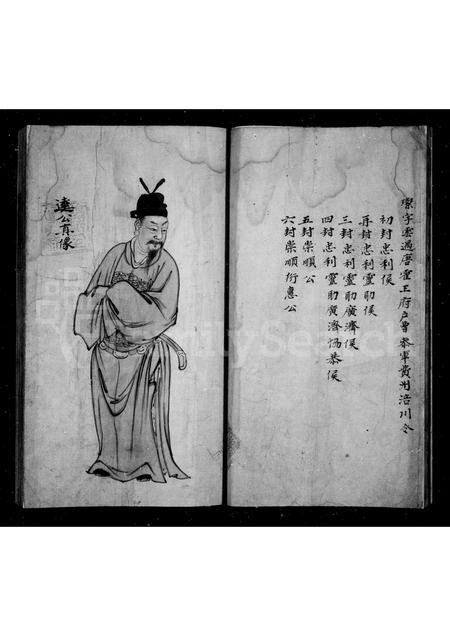 璨字雲適唐霍王府户曹參軍貴州洛川令
初封忠利侯
再封忠利靈助侯
三封忠利靈助廣濟侯
四封忠利靈助廣濟協恭侯
五封崇順公
六封崇順衍惠公
公肖像
FamilySearch